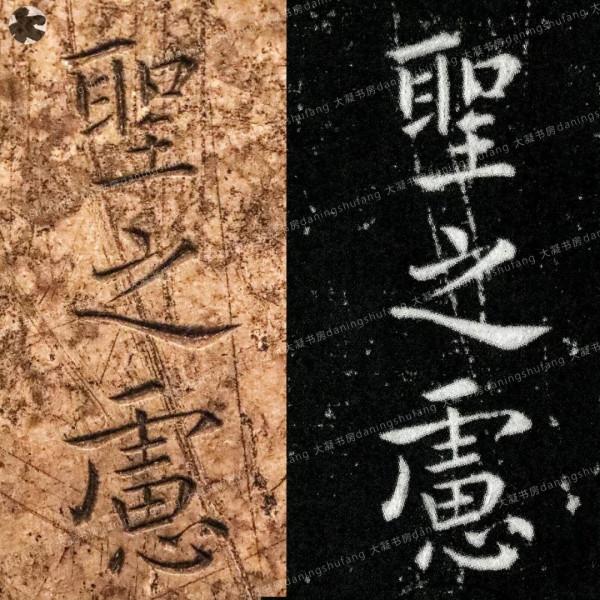 聖之慮
聖之慮
大凝书房daningshufang